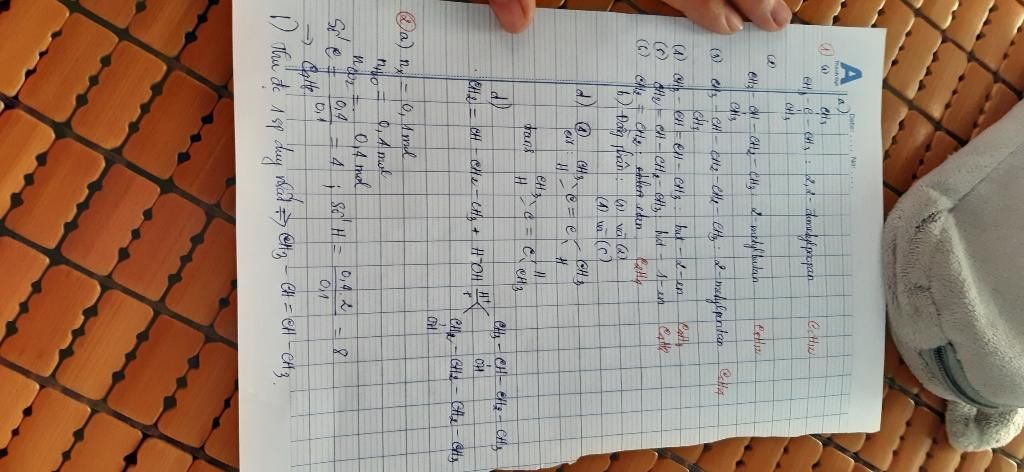 A
① a)
CH3
(1) CH3 - C - CH3 : 2,2 - dimethylpropan C5H12
CH3
(2) CH3 - CH - CH2 - CH3 : 2-metylbutan C5H12
CH3
(3) CH3 - CH - CH2 - CH2 - CH3 : 2-metylpentan C6H14
CH3
(4) CH3 - CH = CH - CH3 : but - 2 - en C4H8
CH2 = CH - CH2 - CH3 but - 1 - en C4H8
CH2 = CH2 : eten C2H4
b) Đồng phân : (1) và (2)
d) CH3 C = C CH3
H H
trans CH3 C = C H
H CH3
d)
CH2 = CH CH2 - CH3 + HOH H+ CH3 - CH - CH2 - CH3
OH
CH2 - CH2 - CH2 - CH3
OH
② a) nx = 0,1 mol
nH2O = 0,4 mol
nCO2 = 0,4 mol
Số C = 0,4 / 0,1 = 4 ; Số H = 0,4.2 / 0,1 = 8
→ C4H8
1) Thu đc 1 sp duy nhất ⇒ CH3 - CH = CH - CH3.